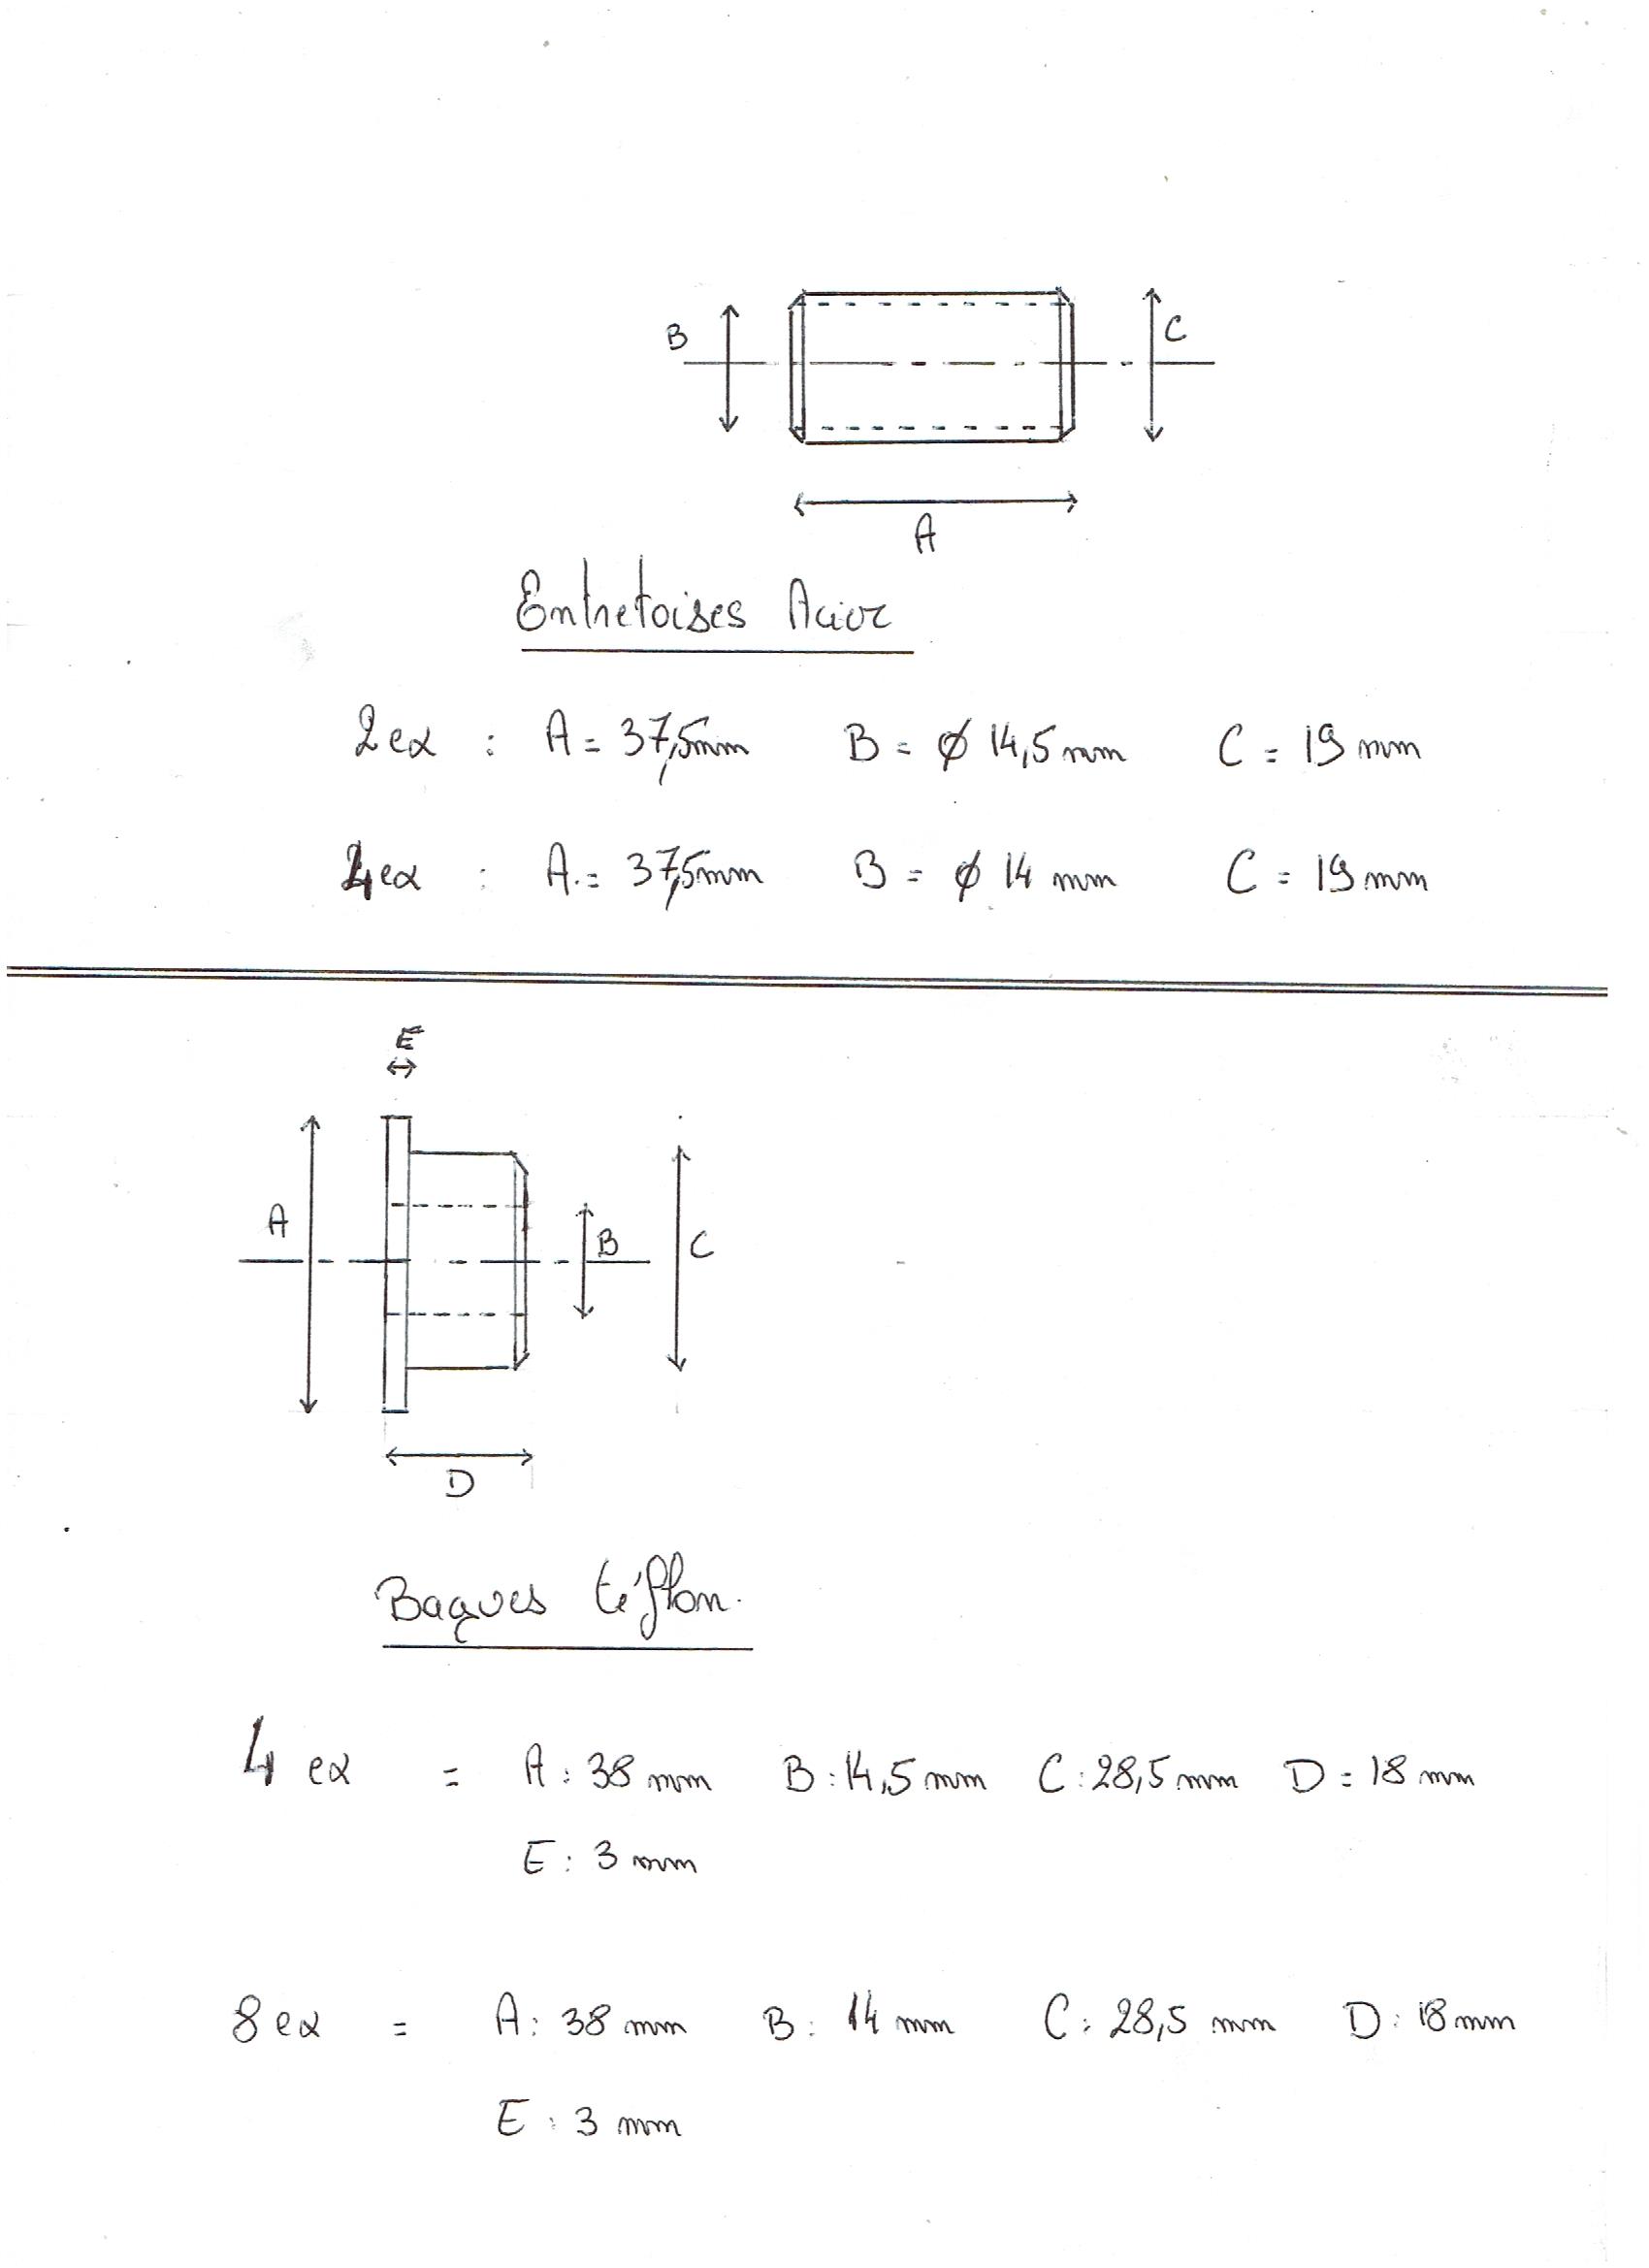 B
C
A
Entretoises Acier
2ex : A = 37,5mm B = ø 14,5 mm C = 19 mm
4ex : A = 37,5mm B = ø 14 mm C = 19 mm
E
A
B
C
D
Bagues téflon.
4 ex = A : 38 mm B : 14,5 mm C : 28,5 mm D = 18 mm
E : 3 mm
8 ex = A : 38 mm B : 14 mm C : 28,5 mm D : 18 mm
E : 3 mm